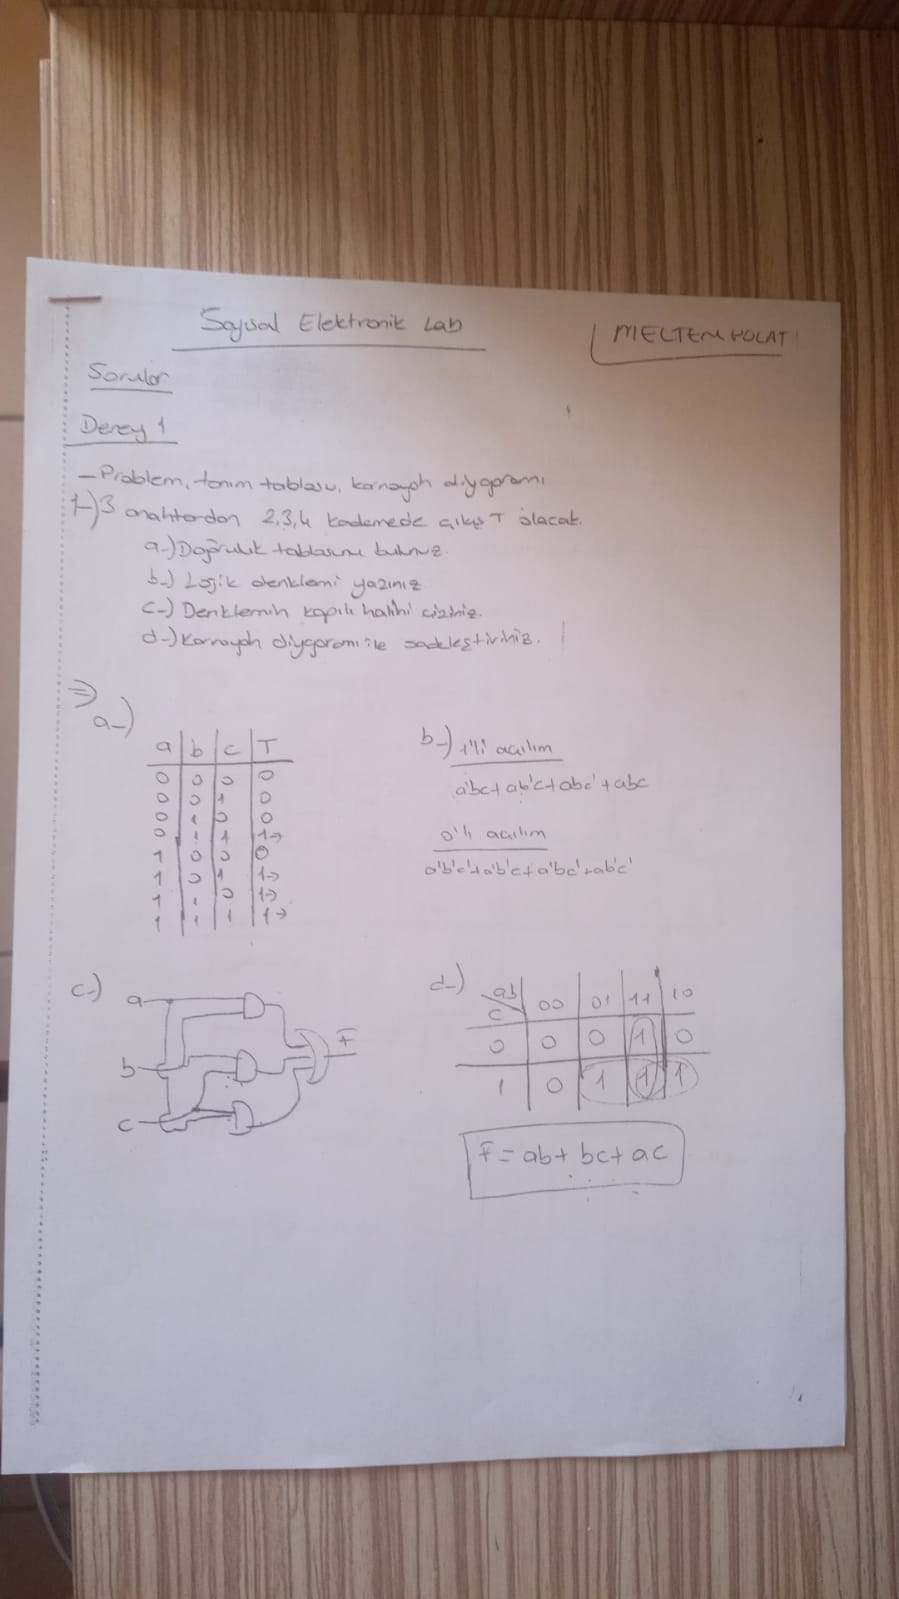 Sayısal Elektronik Lab
MELTEM POLAT
Sorular
Deney 1
- Problem, tanım tablosu, karnaugh diyagramı
1-) 3 anahtardan 2,3,4 kademede çıkış T olacak.
a-) Doğruluk tablosunu bulunuz.
b-) Lojik denklemi yazınız
c-) Denklemin kapılı halini çiziniz.
d-) Karnaugh diyagramı ile sadeleştiriniz.
⇒ a-)
a b c T
0 0 0 0
0 0 1 0
0 1 0 0
0 1 1 1→
1 0 0 0
1 0 1 1→
1 1 0 1→
1 1 1 1→
b-) 1'li açılım
a'bc+ab'c+abc'+abc
0'lı açılım
a'b'c'+a'b'c+a'bc'+ab'c'
c-)
a
b
c
F
d-)
ab
c
00 01 11 10
0 0 0 1 0
1 0 1 1 1
F = ab + bc + ac